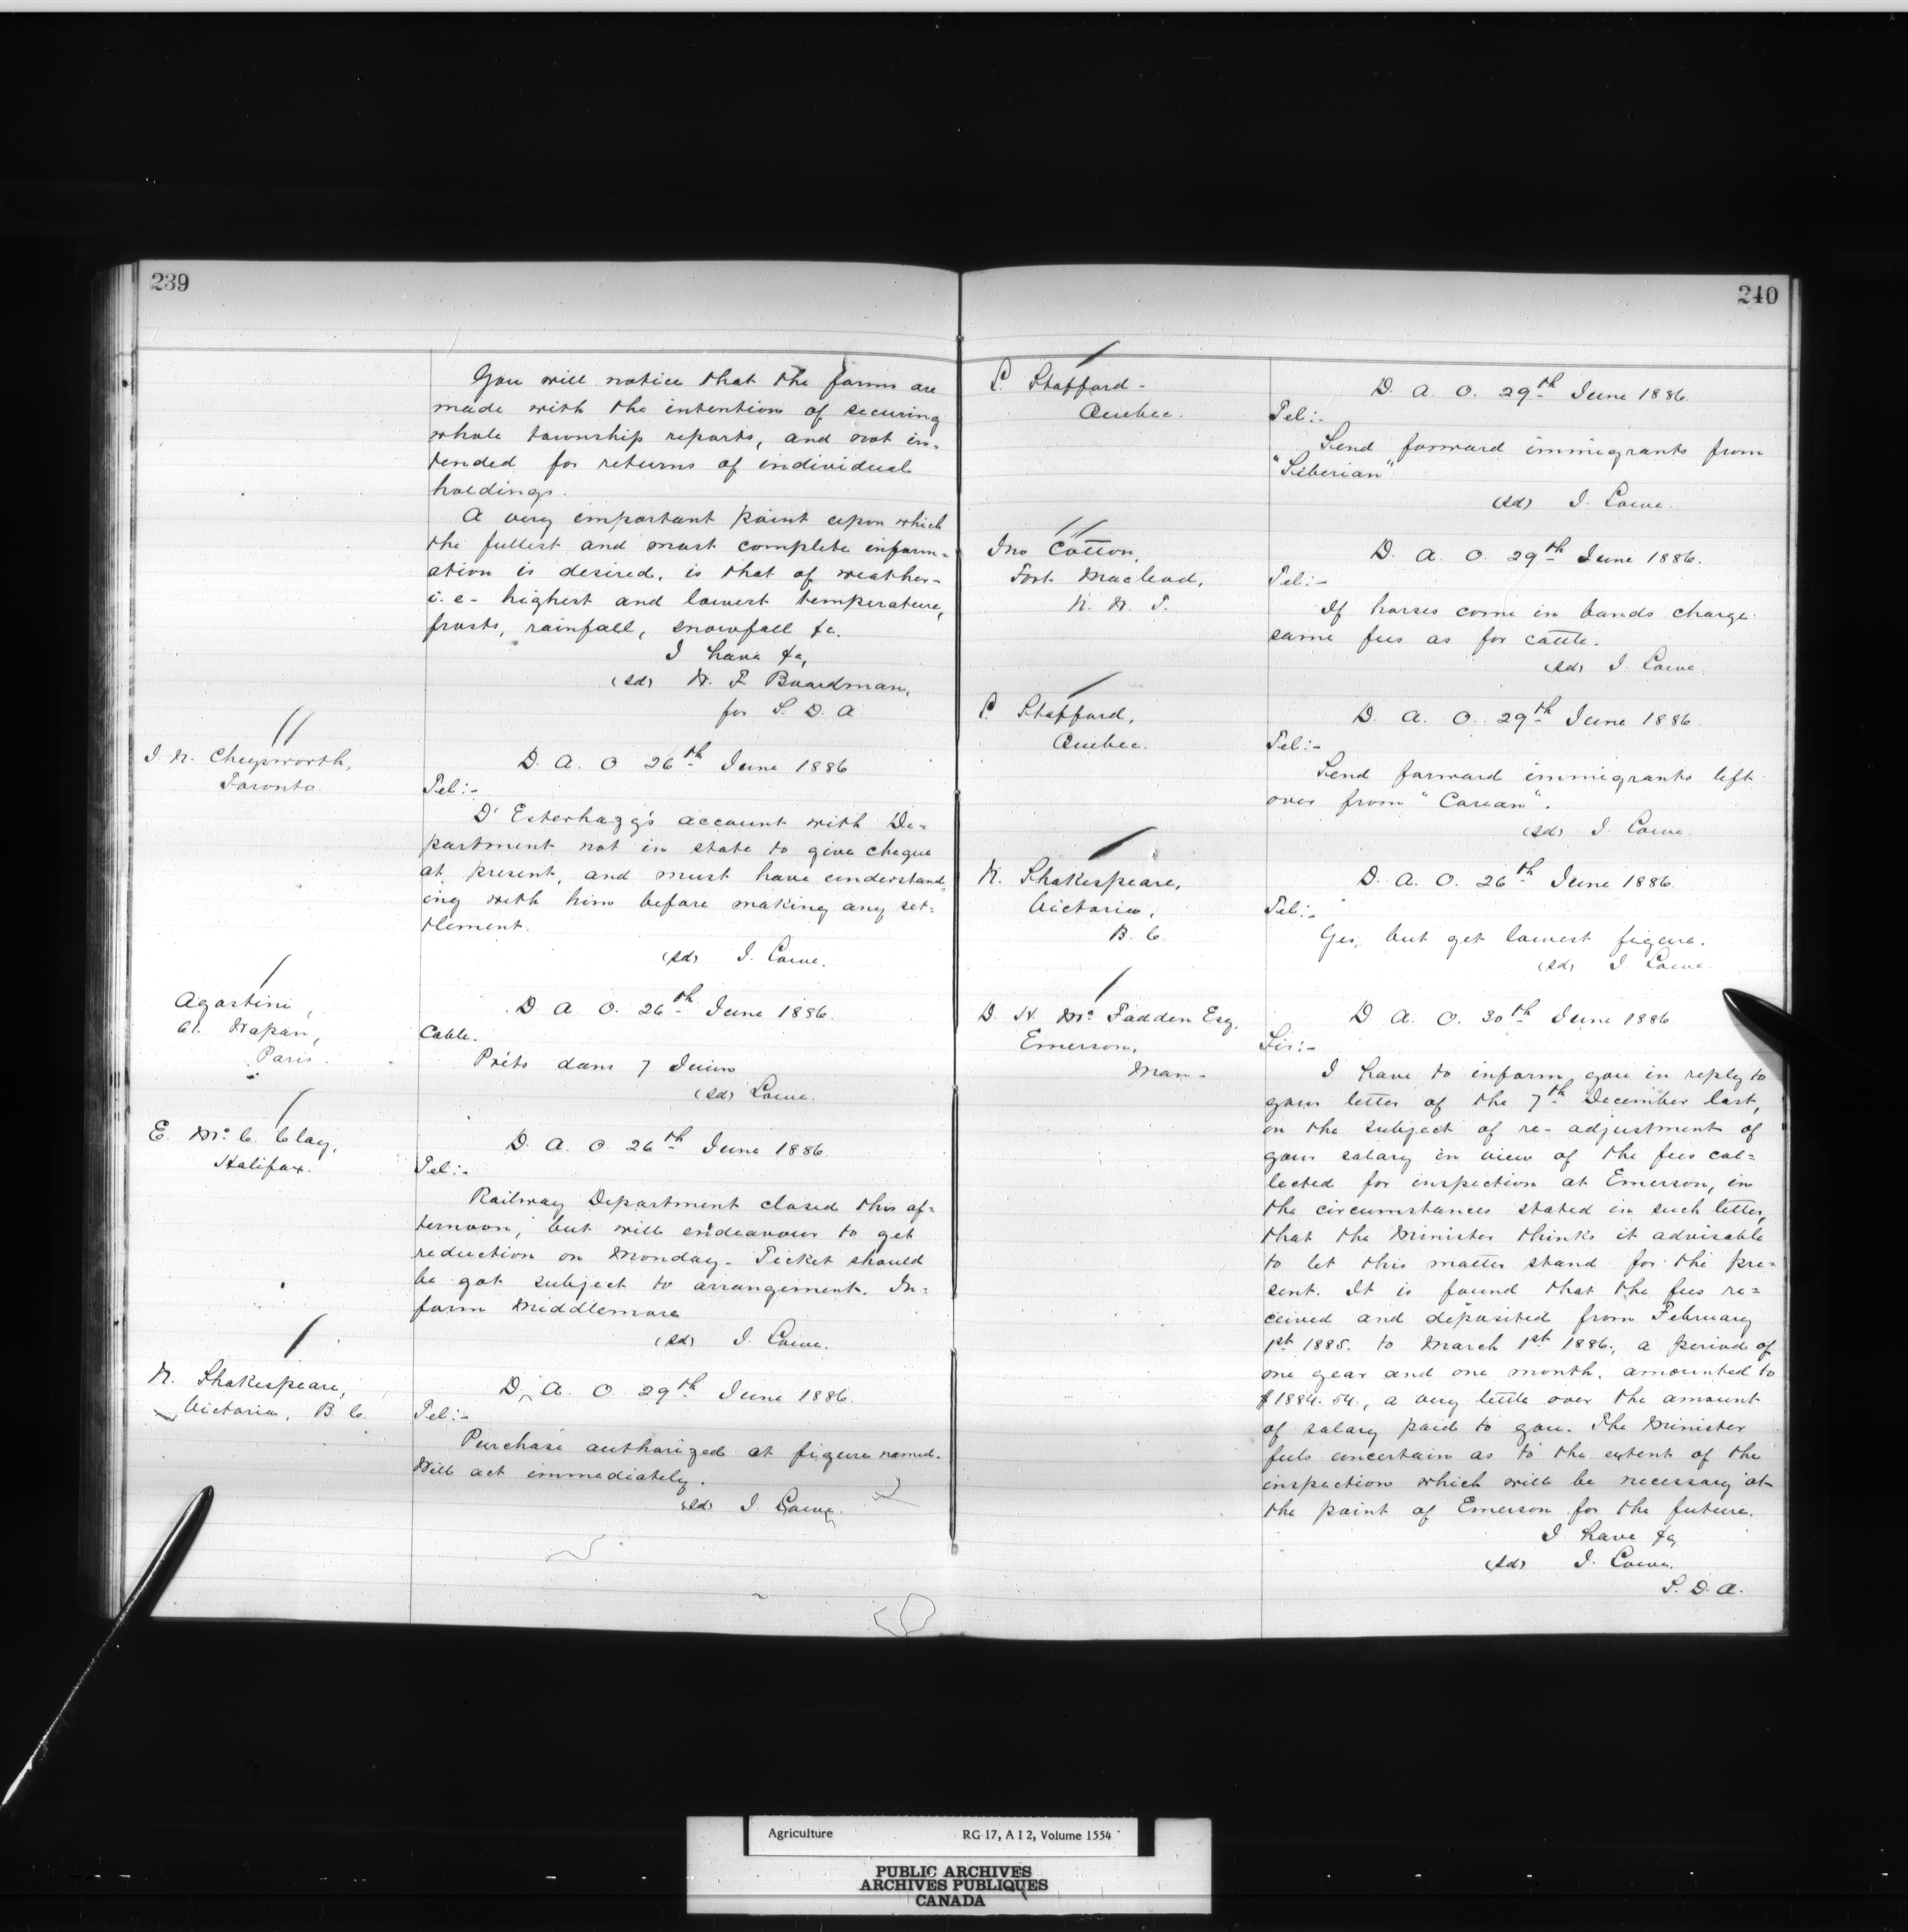 239
You will notice that the forms are
made with the intention of securing
whole township reports, and not in-
tended for returns of individual
holdings.
A very important point upon which
the fullest and most complete inform-
ation is desired, is that of weather-
i.e- highest and lowest temperature,
frosts, rainfall, snowfall &c.
I have &c,
(sd) W. F Boardman,
for S. D. A
J. N.
Toronto.
D. A. O 26th June 1886
Tel:-
D' Esterhazy's account with De-
partment not in state to give cheque
at present, and must have understand-
ing with him before making any set-
tlement.
(sd) J. Lowe.
Agostini,
Paris.
D. A. O. 26th June 1886.
Cable.
Prêts dans 7 Juin
(sd) Lowe.
E. Mc. C. Clay,
Halifax.
D. A. O 26th June 1886
Tel:-
Railway Department closed this af-
ternoon, but will endeavour to get
reduction on Monday- Ticket should
be got subject to arrangement. In-
form Middlemore
(sd) J. Lowe.
N. Shakespeare,
Victoria, B. C.
D. A. O. 29th June 1886.
Tel:-
Purchase authorized at figure named.
Will act immediately.
(sd) J. Lowe.
240
L. Stafford-
Quebec.
D. A. O. 29th June 1886.
Tel:-
Send forward immigrants from
"Siberian"
(sd) J. Lowe.
Jno Cotton,
Fort Macleod,
N. W. T.
D. A. O. 29th June 1886.
Tel:-
If horses come in bands charge
same fees as for cattle.
(sd) J. Lowe.
L. Stafford,
Quebec.
D. A. O. 29th June 1886
Tel:-
Send forward immigrants left
over from "Corean".
(sd) J. Lowe
N. Shakespeare,
Victoria,
B. C.
D. A. O. 26th June 1886.
Tel:-
Yes, but get lowest figure.
(sd) J Lowe.
D. H. Mc. Fadden Esq,
Emerson,
Man-
D. A. O. 30th June 1886
Sir:-
I have to inform you in reply to
your letter of the 7th December last,
on the subject of re-adjustment of
your salary in view of the fees col-
lected for inspection at Emerson, in
the circumstances stated in such letter,
that the Minister thinks it advisable
to let this matter stand for the pre-
sent. It is found that the fees re-
ceived and deposited from February
1st 1885. to March 1st 1886., a period of
one year and one month, amounted to
$1884.54., a very little over the amount
of salary paid to you. The Minister
feels uncertain as to the extent of the
inspection which will be necessary at
the point of Emerson for the future.
I have &c
(sd) J. Lowe.
S. D. A.
Agriculture RG 17, A I 2, Volume 1554
PUBLIC ARCHIVES
ARCHIVES PUBLIQUES
CANADA